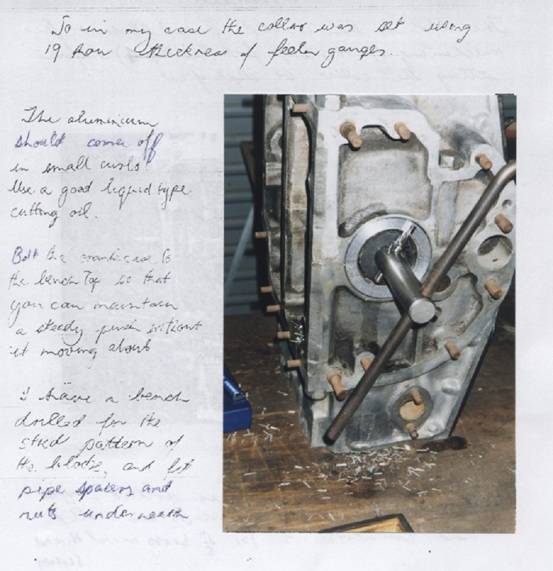 So in my case the collar was set using
19 thou thickness of feeler gauges.
The aluminium
should come off
in small curls
Use a good liquid type
cutting oil.
Bolt the crankcase to
the bench top so that
you can maintain
a steady push without
it moving about
I have a bench
drilled for the
stud pattern of
the blocks, and fit
pipe spacers and
nuts underneath